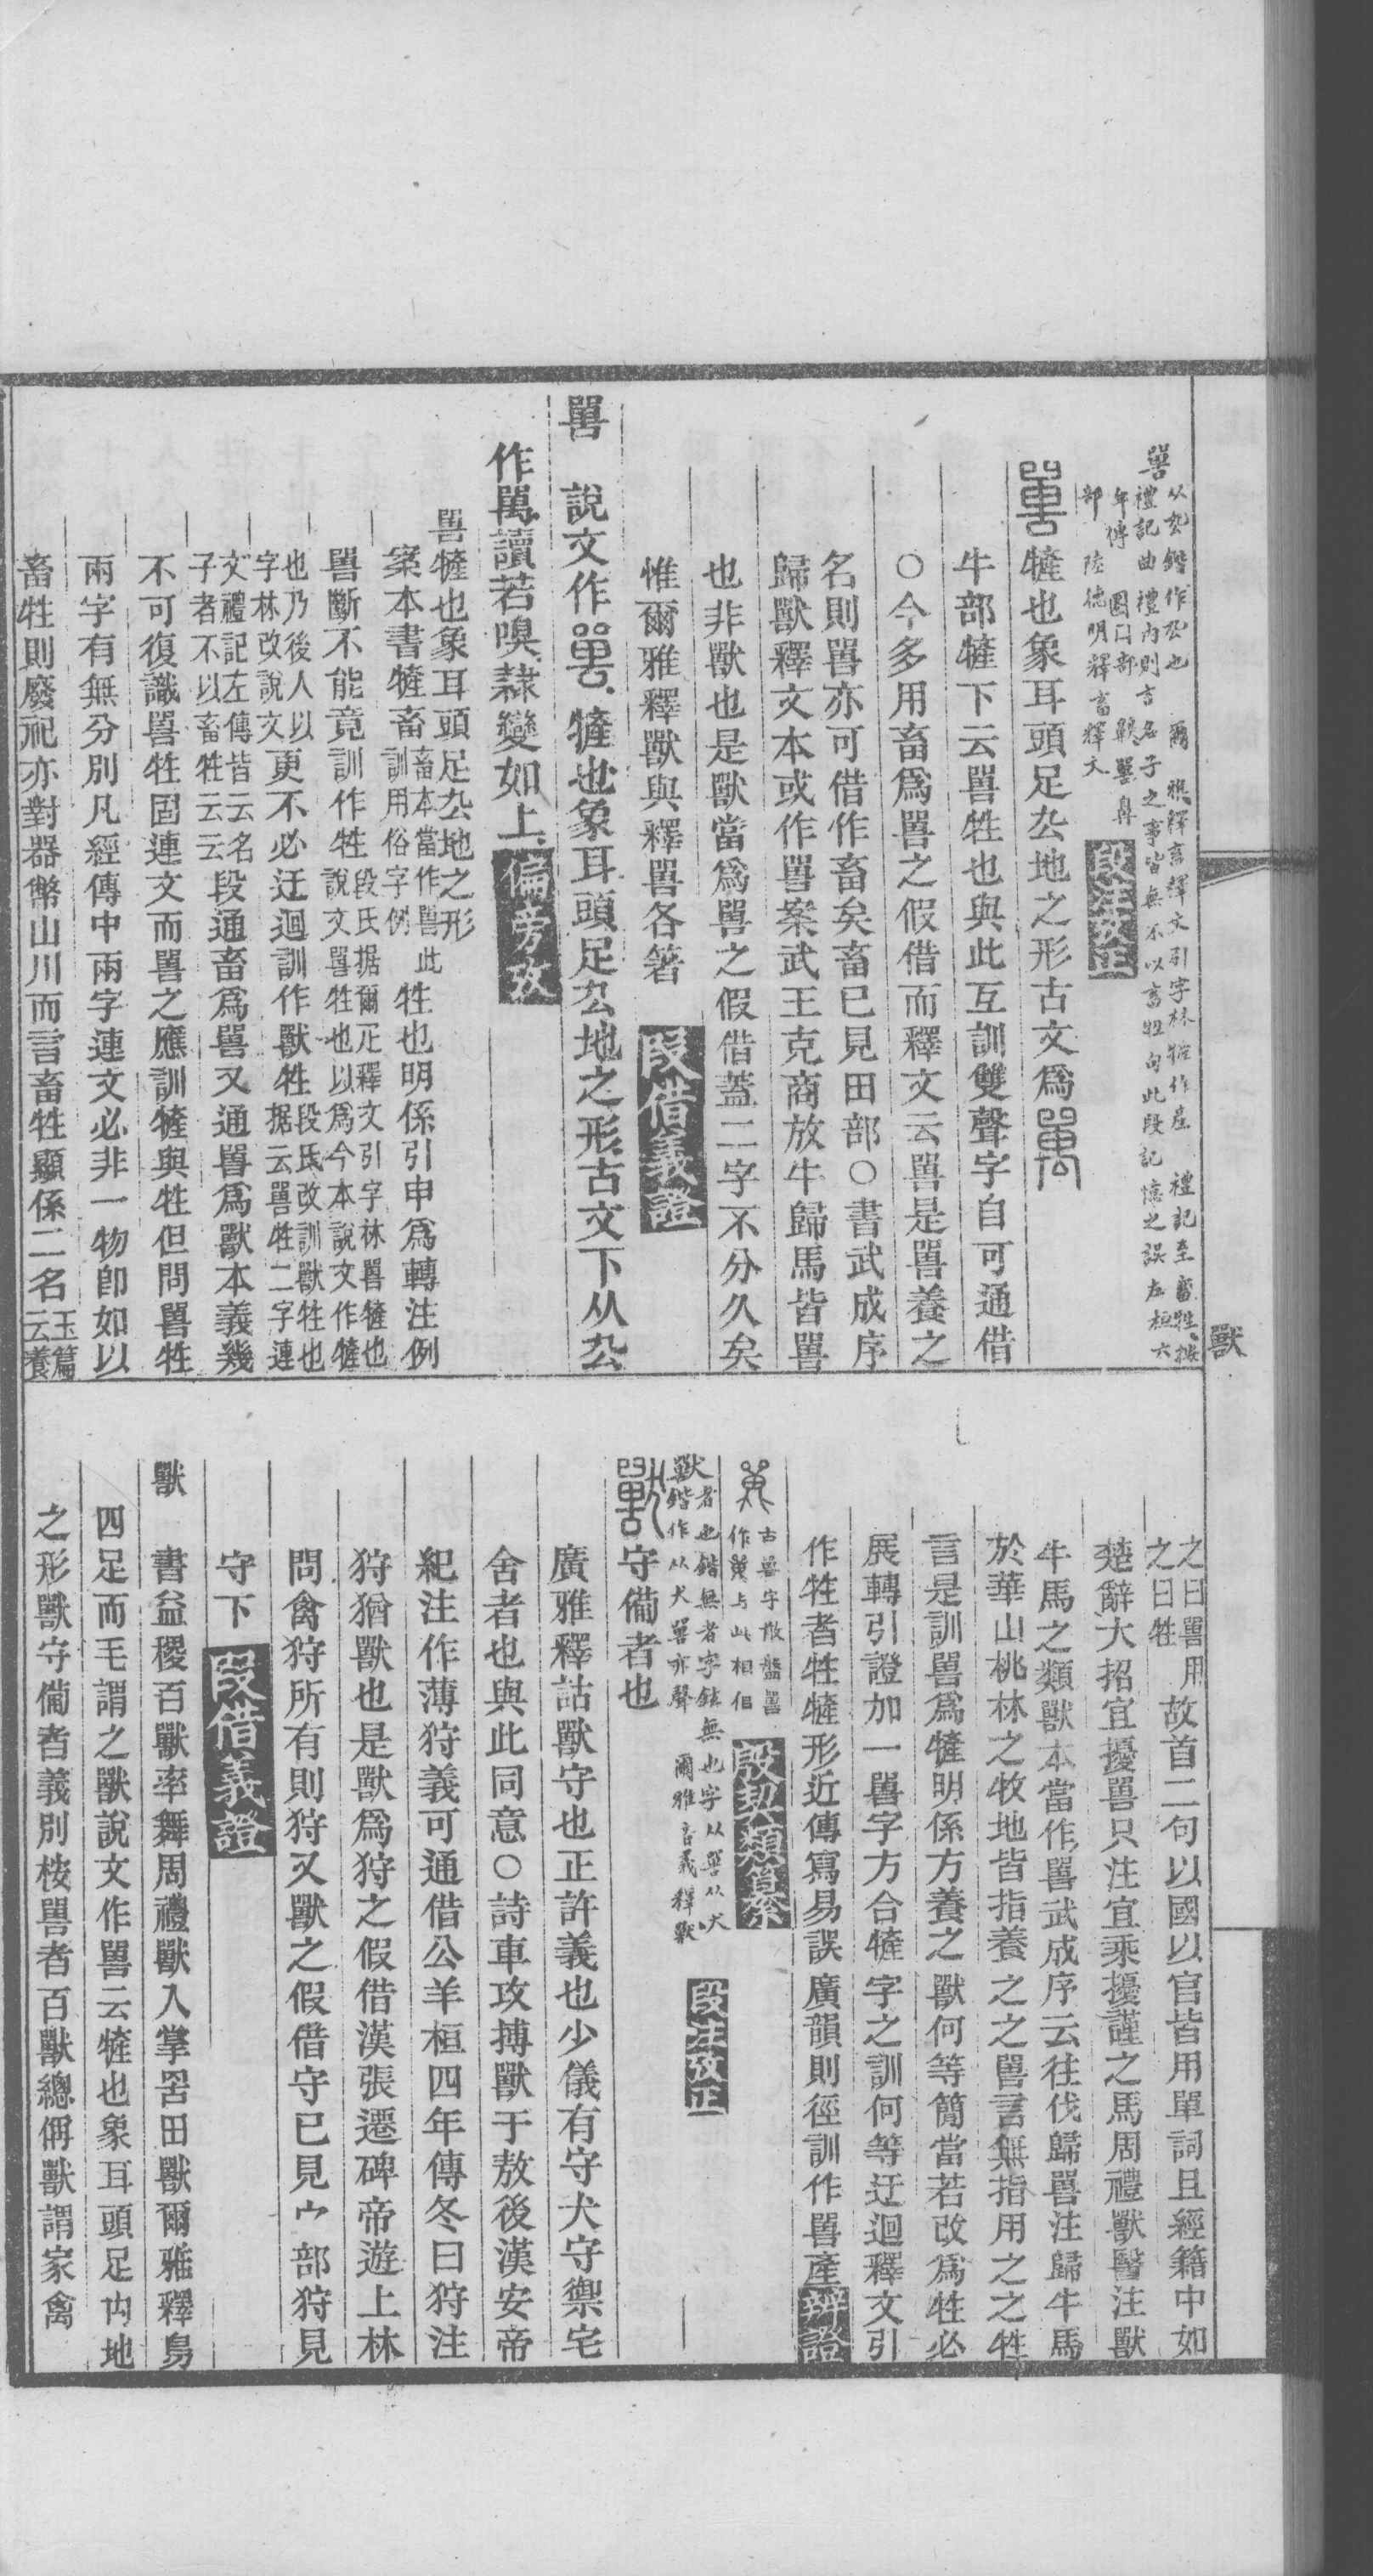 獸
嘼
从厹鍇作厹也 爾雅釋畜釋文引字林㹌作産 禮記至畜牲 按
禮記曲禮內則言名子之事皆無不以畜牲句此段記憶之誤左桓六
年傳 囗部 獸嘼
部 陸德明釋畜釋文
段注攷正
㹌也象耳頭足厹地之形古文爲
牛部㹌下云嘼牲也與此互訓雙聲字自可通借
○今多用畜爲嘼之假借而釋文云嘼是嘼養之
名則嘼亦可借作畜矣畜已見田部○書武成序
歸獸釋文本或作嘼案武王克商放牛歸馬皆嘼
也非獸也是獸當爲嘼之假借蓋二字不分久矣
惟爾雅釋獸與釋嘼各箸
段借義證
嘼 說文作嘼㹌也象耳頭足厹地之形古文下从厹
作萬讀若嗅隷變如上
偏旁攷
嘼㹌也象耳頭足厹地之形
案本書㹌畜畜本當作嘼此訓用俗字例牲也明係引申爲轉注例
嘼斷不能竟訓作牲段氏据爾疋釋文引字林嘼㹌也說文嘼牲也以爲今本說文作㹌
也乃後人以字林改說文更不必迂迴訓作獸牲段氏改訓獸牲也据云嘼牲二字連
文禮記左傳皆云名子者不以畜牲云云段通畜爲嘼又通嘼爲獸本義幾
不可復識嘼牲固連文而嘼之應訓㹌與牲但問嘼牲
兩字有無分別凡經傳中兩字連文必非一物卽如以
畜牲則廢祀亦對器幣山川而言畜牲顯係二名玉篇云養
之曰嘼用之曰牲故首二句以國以官皆用單詞且經籍中如
楚辭大招宜擾嘼只注宜乘擾謹之馬周禮獸醫注獸
牛馬之類獸本當作嘼武成序云往伐歸嘼注歸牛馬
於華山桃林之牧地皆指養之之嘼言無指用之之牲
言是訓嘼爲㹌明係方養之獸何等簡當若改爲牲必
展轉引證加一嘼字方合㹌字之訓何等迂迴釋文引
作牲者牲㹌形近傳寫易誤廣韻則徑訓作嘼產
辨證
古嘼字散盤嘼
作與此相佀
殷契類纂
獸
者也鍇無者字鉉無也字从嘼从犬
鍇作从犬嘼亦聲 爾雅音義釋獸
段注攷正
守備者也
廣雅釋詁獸守也正許義也少儀有守犬守禦宅
舍者也與此同意○詩車攻搏獸于敖後漢安帝
紀注作薄狩義可通借公羊桓四年傳冬曰狩注
狩猶獸也是獸爲狩之假借漢張遷碑帝遊上林
問禽狩所有則狩又獸之假借守已見宀部狩見
守下
段借義證
獸 書益稷百獸率舞周禮獸人掌罟田獸爾雅釋鳥
四足而毛謂之獸說文作嘼云㹌也象耳頭足禸地
之形獸守備者義別桉嘼者百獸總偁獸謂家禽